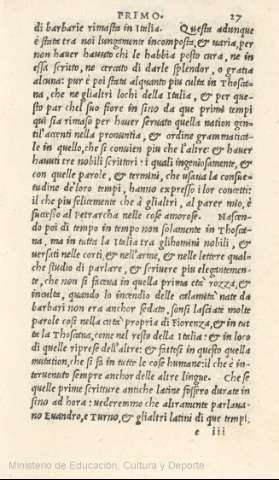 PRIMO. 27
di barbarie rimasta in Italia. Questa adunque
è stata tra noi lungamente incomposta, & uaria, per
non hauer hauuto chi le habbia posto cura, ne in
essa scritto, ne cercato di darle splendor, o gratia
alcuna: pur è poi stata alquanto piu culta in Thosca-
na, che ne gli altri lochi della Italia, & per que-
sto par chel suo fiore in sino da que primi tempi
qui sia rimaso per hauer seruato quella nation gen-
til'accenti nella pronuntia, & ordine grammatica-
le in quello, che si conuien piu che l'altre: & hauer
hauuti tre nobili scrittori: i quali ingeniosamente, &
con quelle parole, & termini, che usaua la consue-
tudine de loro tempi, hanno expresso i lor concetti:
il che piu felicemente che à gl'altri, al parer mio, è
successo al Petrarcha nelle cose amorose. Nascen-
do poi di tempo in tempo non solamente in Thosca-
na, ma in tutta la Italia tra glihomini nobili, &
uersati nelle corti, & nell'arme, & nelle lettere qual-
che studio di parlare, & scriuere piu elegantemen-
te, che non si faceua in quella prima età rozza, &
inculta, quando lo incendio delle calamità nate da
barbari non era anchor sedato, sonsi lasciate molte
parole cosi nella città propria di Fiorenza, & in tut-
ta la Thoscana, come nel resto della Italia: & in loro
di quelle riprese dell'altre: & fattosi in questo quella
mutation, che si fa in tutte le cose humane: il che è in-
teruenuto sempre anchor delle altre lingue. Che se
quelle prime scritture antiche latine fossero durate in
sino ad hora: uederemmo che altramente parlaua-
no Euandro, e Turno, & glialtri latini di que tempi,
e iii
Ministerio de Educación, Cultura y Deporte